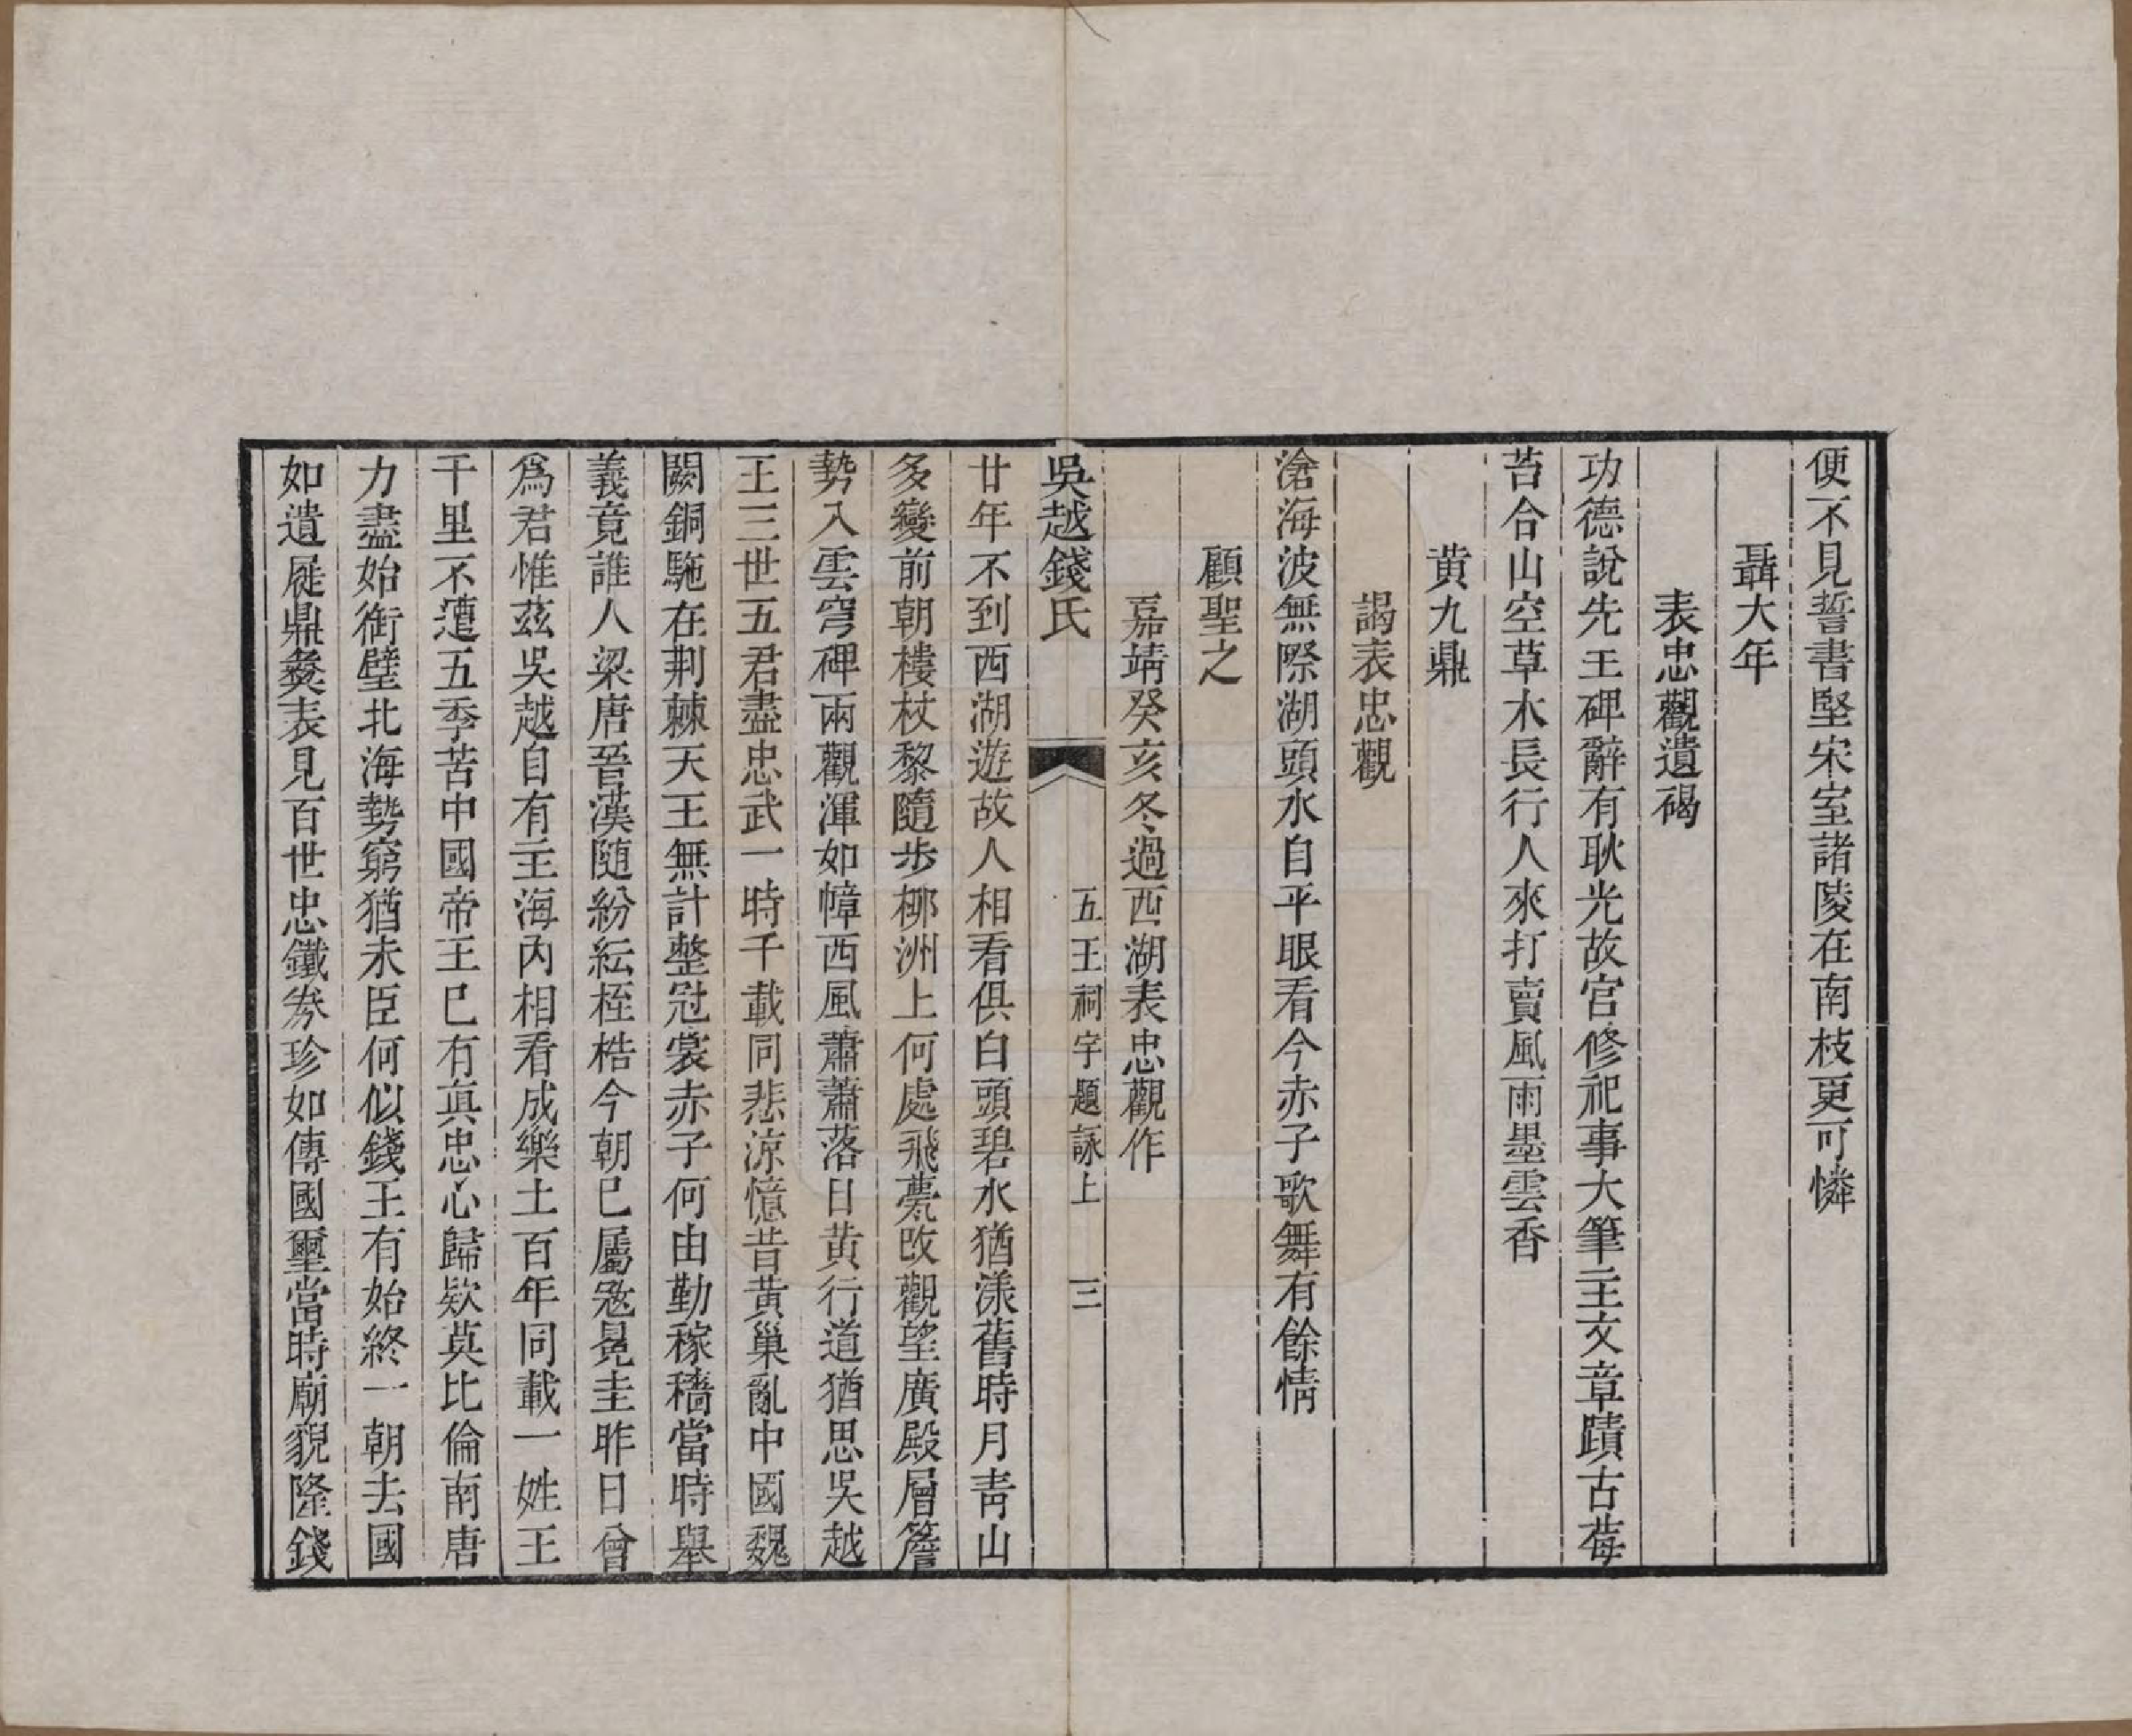 便不見誓書堅宋室諸陵在南枝更可憐
聶大年
表忠觀遺碣
功德說先王碑辭有耿光故宮修祀事大筆主文章蹟古莓
苔合山空草木長行人來打賣風雨墨雲香
黄九鼎
謁表忠觀
滄海波無際湖頭水自平眼看今赤子歌舞有餘情
顧聖之
嘉靖癸亥冬過西湖表忠觀作
吳越錢氏
五王祠宇題詠上
三
廿年不到西湖遊故人相看俱白頭碧水猶漾舊時月靑山
多變前朝樓杖黎隨步栁洲上何處飛甍改觀望廣殿層簷
勢入雲穹碑兩觀渾如幛西風蕭蕭落日黄行道猶思吳越
王三世五君盡忠武一時千載同悲涼憶昔黄巢亂中國魏
闕銅駞在荆棘天王無計整冠裳赤子何由勤稼穡當時舉
義竟誰人梁唐晉漢随紛紜桎梏今朝已屬冕圭昨日曾
爲君惟茲吳越自有主海内相看成樂土百年同載一姓王
千里不遭五季苦中國帝王已有眞忠心歸欵莫比倫南唐
力盡始銜璧北海勢窮猶未臣何似錢王有始終一朝去國
如遺屣鼎彝表見百世忠鐵券珍如傳國璽當時廟貌隆錢